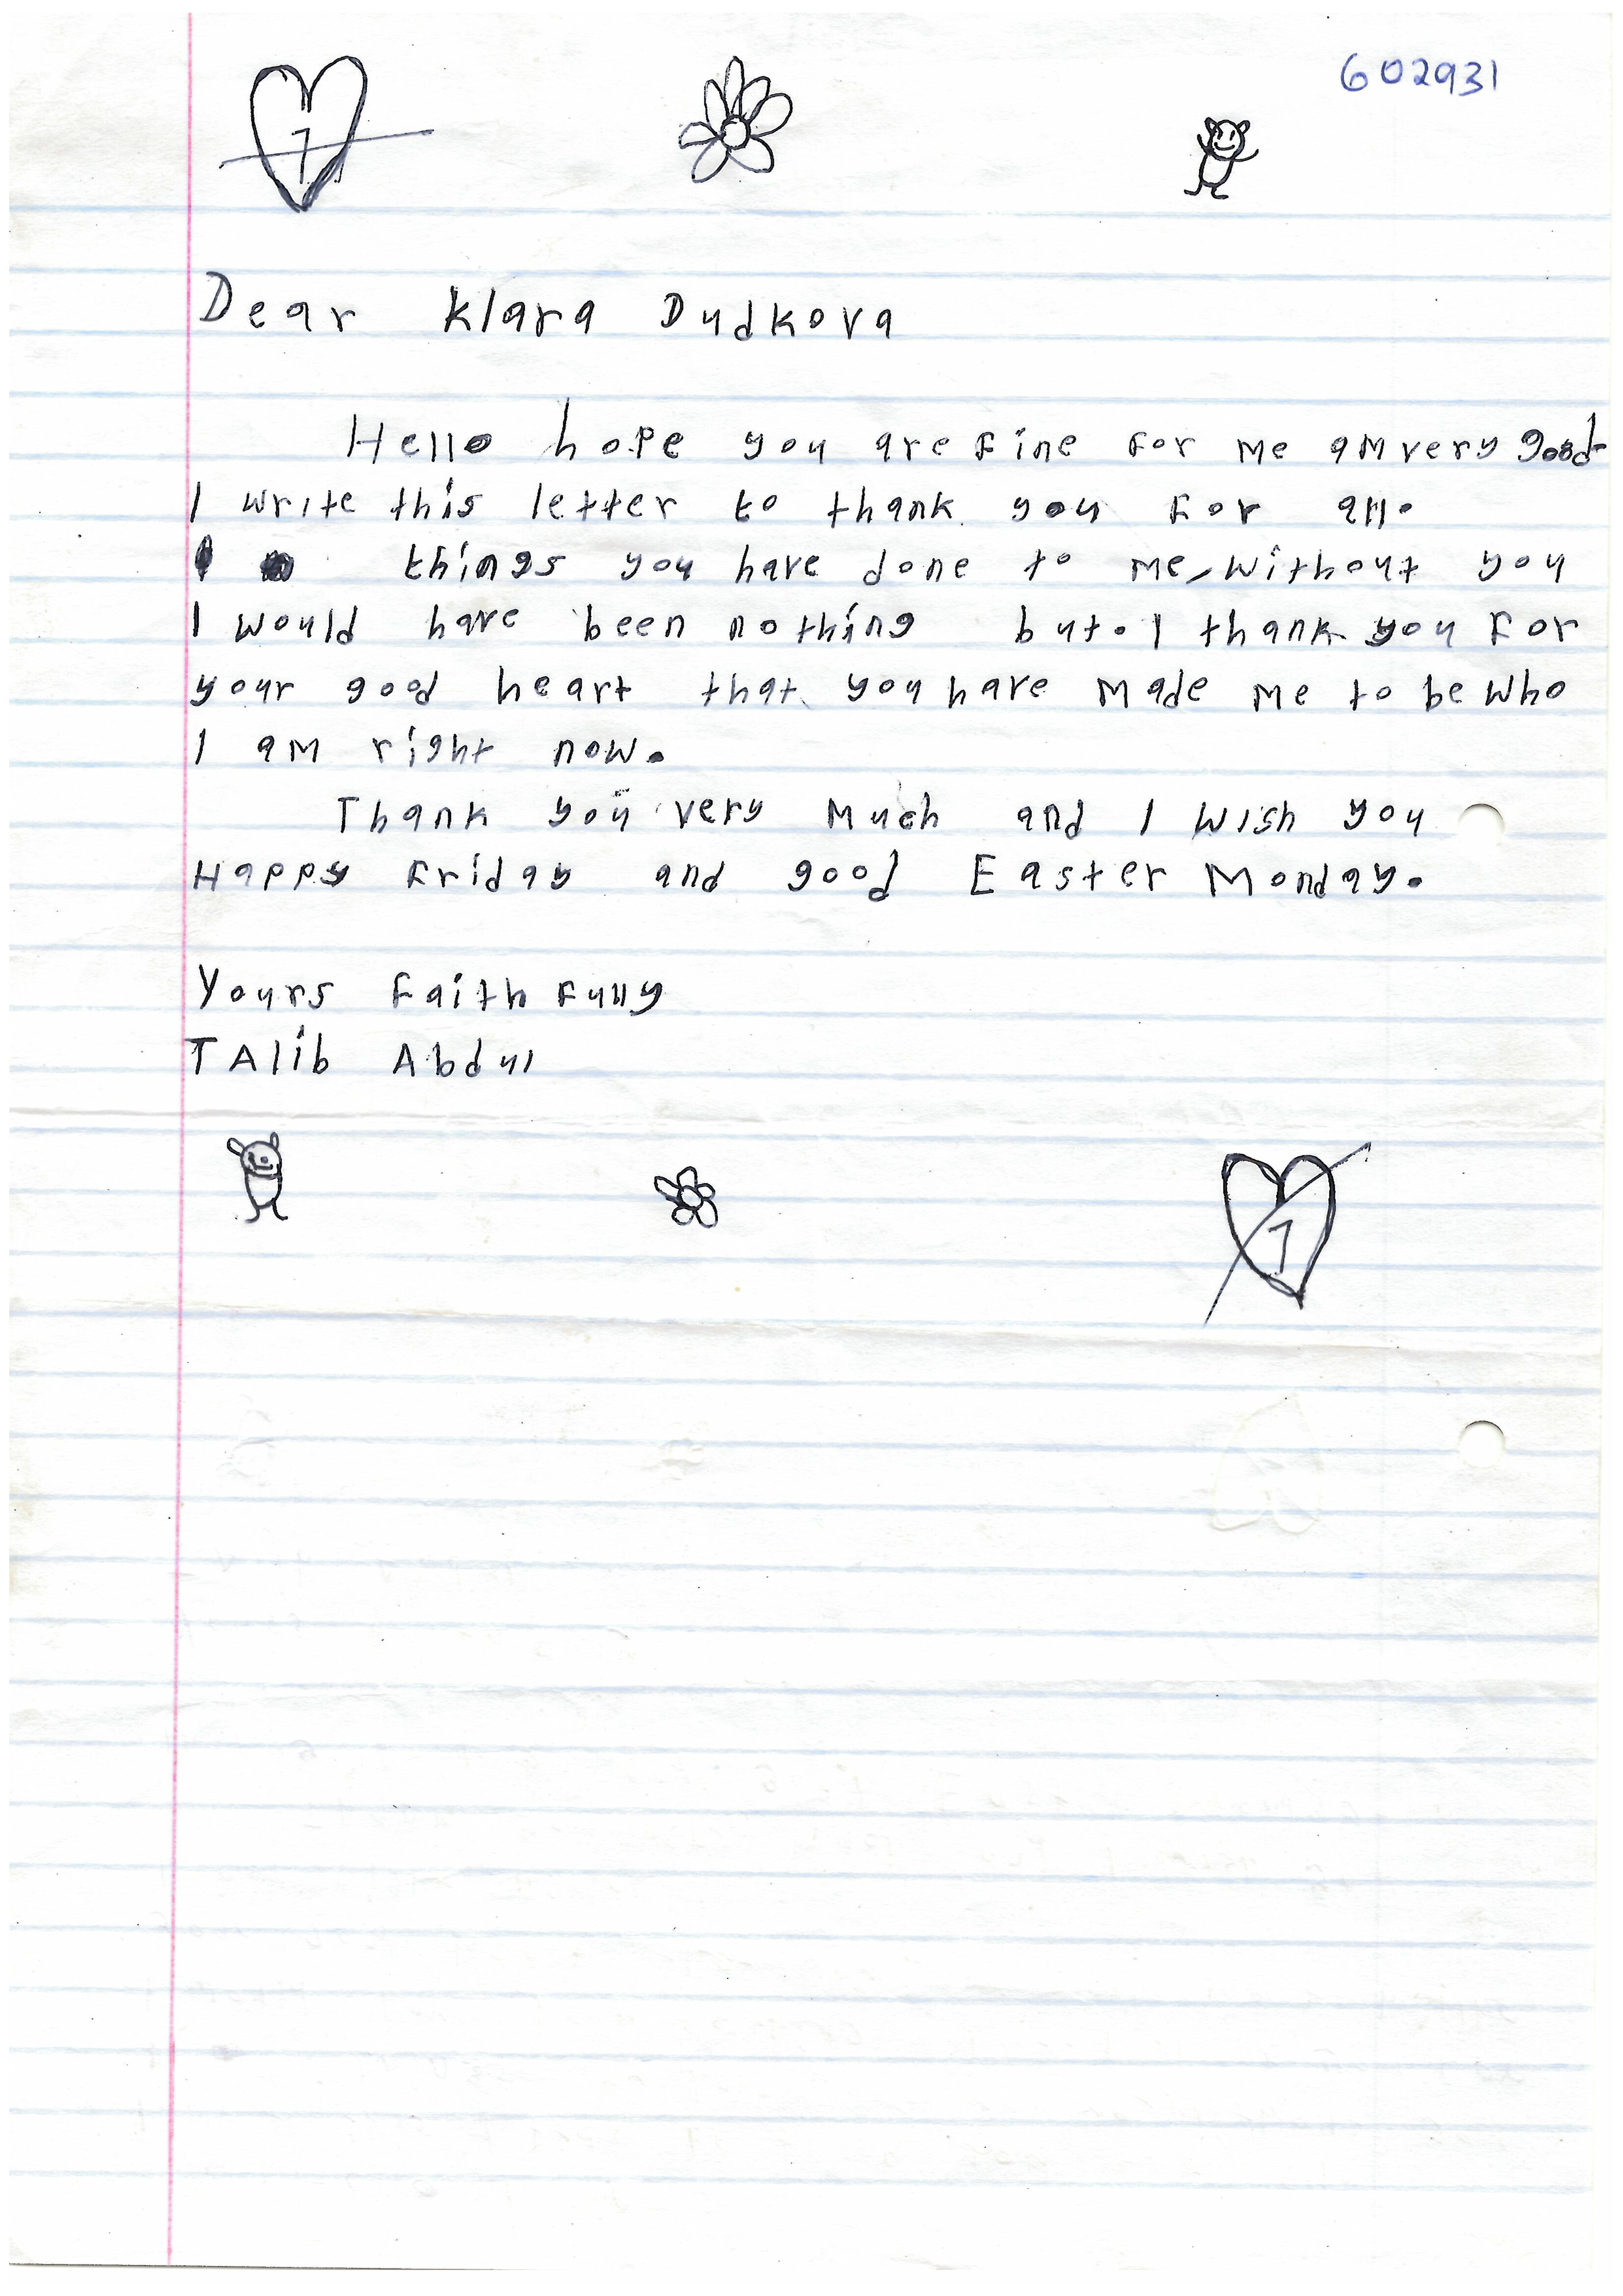 602931
1
Dear Klara Dudkova
Hello hope you are Fine For me am very good
I write this letter to thank you For all.
things you have done to me, without you
I would have been nothing but. I thank you For
your good heart that you have made me to be who
I am right now.
Thank you very much and I wish you
Happy Friday and good Easter Monday.
Yours FaithFully
TAlib Abdul
1